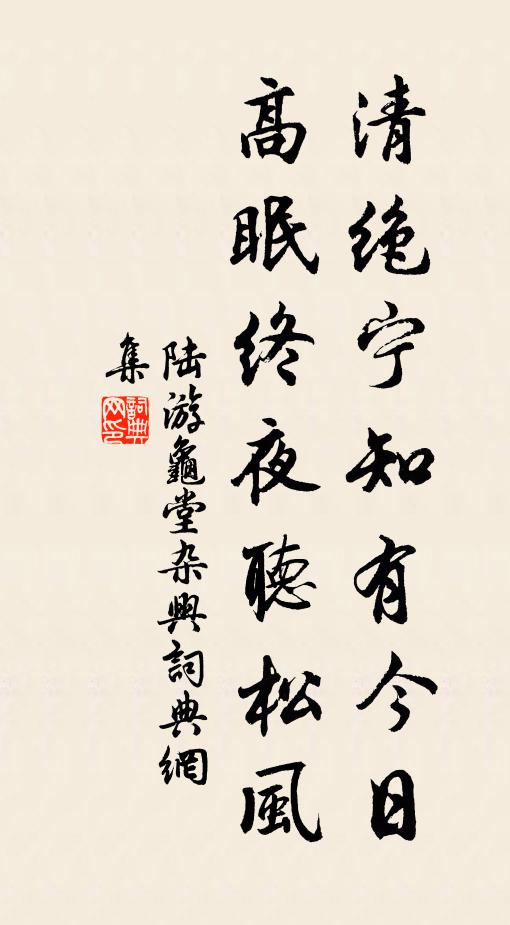 清絶宁知有今日
高眠终夜聴松風
陆游龜堂杂興詞典網
集
詞典
网印